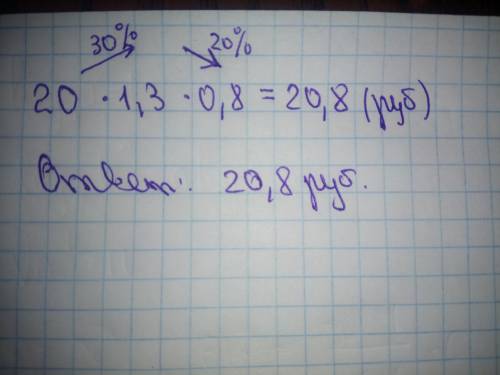 30% 20%
20 · 1,3 · 0,8 = 20,8 (руб)
Ответ: 20,8 руб.